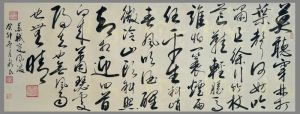 莫聽穿林打
葉聲何妨吟
嘯且徐行竹杖
芒鞋輕勝馬
誰怕一蓑煙雨
任平生料峭
春風吹酒醒
微冷山頭斜照
卻相迎回首
向來蕭瑟處
歸去也無風雨
也無晴
蘇軾定風波
癸卯